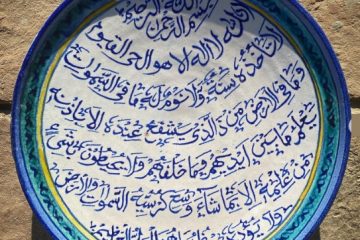 بسم الله الرحمن الرحيم
الله لا اله الا هو الحى القيوم
لا تأخذه سنة ولا نوم له ما فى السموات
وما فى الارض من ذا الذى يشفع عنده الا باذنه
يعلم ما بين ايديهم وما خلفهم ولا يحيطون بشىء
من علمه الا بما شاء وسع كرسيه السموات والارض
ولا يؤده حفظهما وهو العلى العظيم